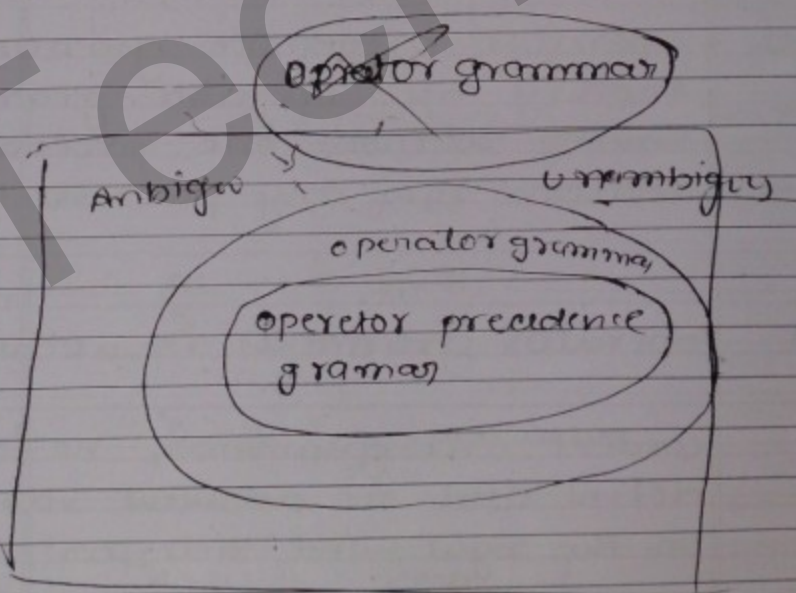 operator grammar
Anbiguu unambiguu
operator gramma
operetor precedence
gramar
Tech